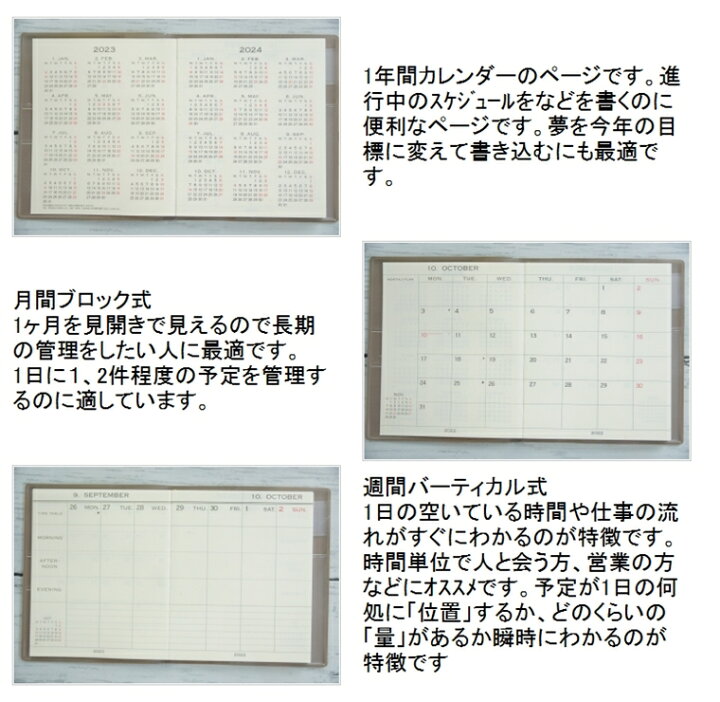 2023
2024
1. JAN.
2. FEB.
3. MAR.
1. JAN.
2. FEB.
3. MAR.
4. APR.
5. MAY
6. JUN.
4. APR.
5. MAY
6. JUN.
7. JUL.
8. AUG.
9. SEP.
7. JUL.
8. AUG.
9. SEP.
10. OCT.
11. NOV.
12. DEC.
10. OCT.
11. NOV.
12. DEC.
1年間カレンダーのページです。進
行中のｽｹｼﾞｭｰﾙをなどを書くのに
便利なページです。夢を今年の目
標に変えて書き込むにも最適で
す。
月間ブロック式
1ヶ月を見開きで見えるので長期
の管理をしたい人に最適です。
1日に1、2件程度の予定を管理す
るのに適しています。
10. OCTOBER
MONTHLY PLAN
MON. TUE. WED. THU. FRI. SAT. SUN.
1 2
3 4 5 6 7 8 9
10 11 12 13 14 15 16
17 18 19 20 21 22 23
24 25 26 27 28 29 30
NOV
31
2022
2022
9. SEPTEMBER
10. OCTOBER
26 MON. 27 TUE. 28 WED. 29 THU. 30 FRI. 1 SAT. 2 SUN.
TIME TABLE
MORNING
AFTER-
NOON
EVENING
OCT
2022
2022
週間バーティカル式
1日の空いている時間や仕事の流
れがすぐにわかるのが特徴です。
時間単位で人と会う方、営業の方
などにｵｽｽﾒです。予定が1日の何
処に「位置」するか、どのくらいの
「量」があるか瞬時にわかるのが
特徴です